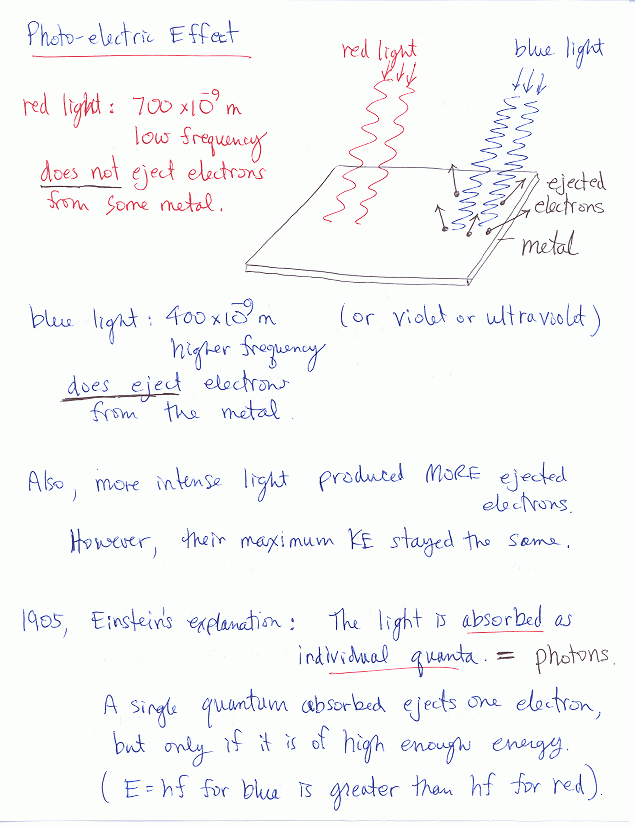 Photo-electric Effect
red light
blue light
red light: 700 x10⁻⁹ m
low frequency
does not eject electrons
from some metal.
ejected
electrons
metal
blue light: 400 x10⁻⁹ m (or violet or ultraviolet)
higher frequency
does eject electrons
from the metal.
Also, more intense light produced MORE ejected
electrons.
However, their maximum KE stayed the same.
1905, Einstein's explanation: The light is absorbed as
individual quanta. = photons.
A single quantum absorbed ejects one electron,
but only if it is of high enough energy.
(E=hf for blue is greater than hf for red).